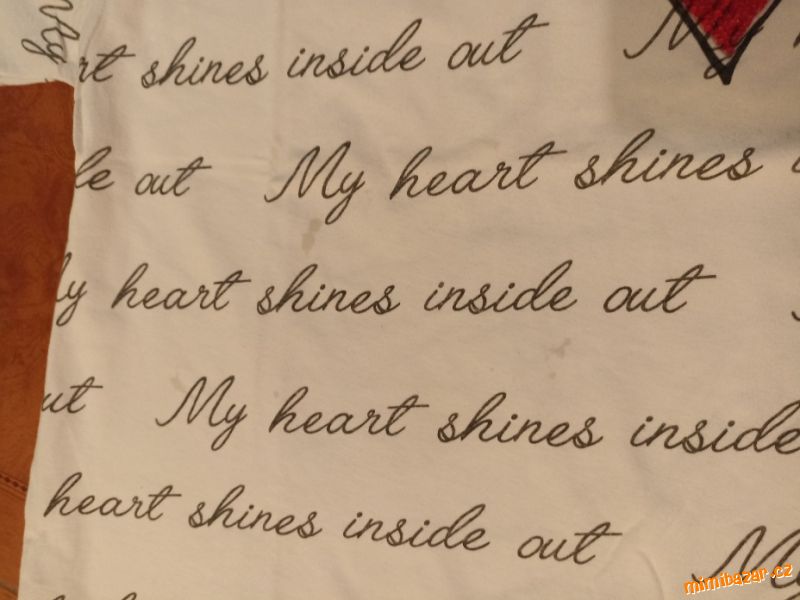 shines inside out My
out My heart shines
heart shines inside out
My heart shines inside
heart shines inside out My
mimibazar.cz